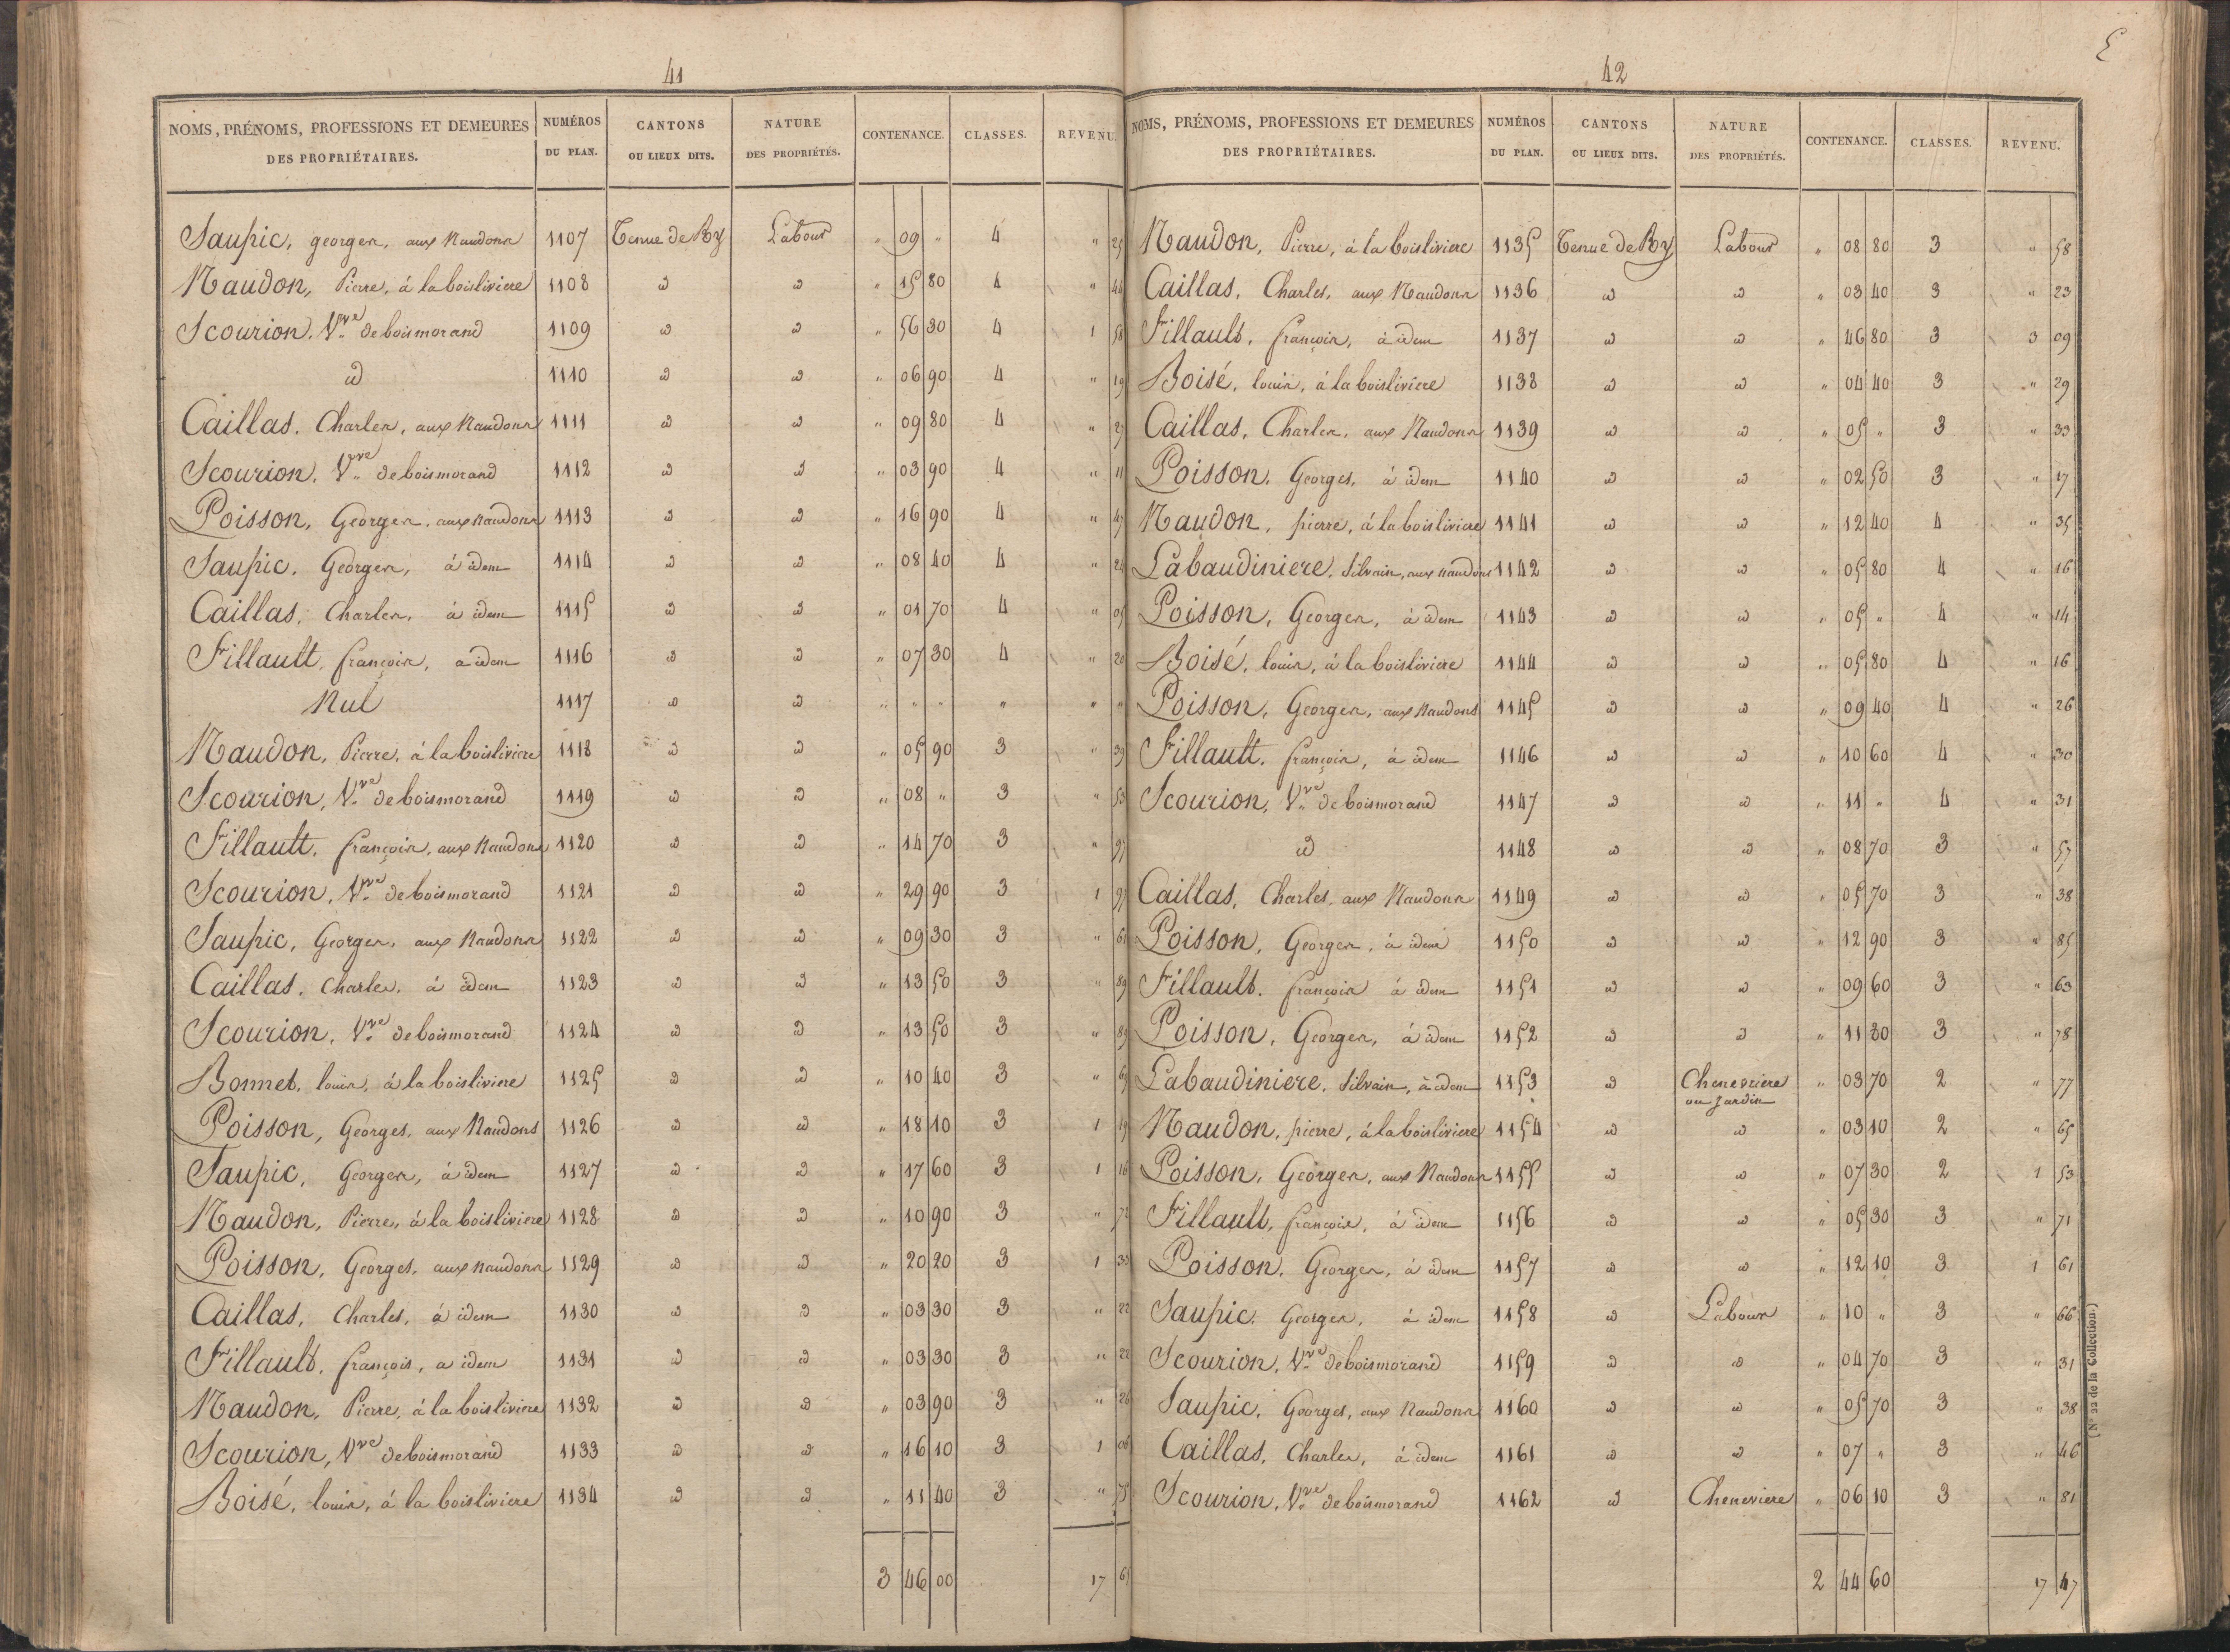 41
NOMS, PRÉNOMS, PROFESSIONS ET DEMEURES DES PROPRIÉTAIRES. NUMÉROS DU PLAN. CANTONS OU LIEUX DITS. NATURE DES PROPRIÉTÉS. CONTENANCE. CLASSES. REVENU.
Saupic, georges, aux Naudons 1107 Tenue de Ry Labour " 09 " 4 " 25
Naudon, Pierre, à la boisliviere 1108 id id " 15 80 4 " 44
Scourion, Vve de boismorand 1109 id id " 56 30 4 1 58
id 1110 id id " 06 90 4 " 19
Caillas, Charles, aux Naudons 1111 id id " 09 80 4 " 27
Scourion, Vve de boismorand 1112 id id " 03 90 4 " 11
Poisson, Georges, aux naudons 1113 id id " 16 90 4 " 47
Saupic, Georges, à idem 1114 id id " 08 40 4 " 24
Caillas, Charles, à idem 1115 id id " 01 70 4 " 05
Fillault, françois, a idem 1116 id id " 07 30 4 " 20
Nul 1117 id id " " " " " "
Naudon, Pierre, à la boisliviere 1118 id id " 05 90 3 " 39
Scourion, Vve de boismorand 1119 id id " 08 " 3 " 53
Fillault, françois, aux Naudons 1120 id id " 14 70 3 " 97
Scourion, Vve de boismorand 1121 id id " 29 90 3 1 97
Saupic, Georges, aux Naudons 1122 id id " 09 30 3 " 61
Caillas, Charles, à idem 1123 id id " 13 50 3 " 89
Scourion, Vve de boismorand 1124 id id " 13 50 3 " 89
Bonnet, louis, à la boisliviere 1125 id id " 10 40 3 " 69
Poisson, Georges, aux Naudons 1126 id id " 18 10 3 1 19
Saupic, Georges, à idem 1127 id id " 17 60 3 1 16
Naudon, Pierre, à la boisliviere 1128 id id " 10 90 3 " 72
Poisson, Georges, aux naudons 1129 id id " 20 20 3 1 33
Caillas, Charles, à idem 1130 id id " 03 30 3 " 22
Fillault, françois, a idem 1131 id id " 03 30 3 " 22
Naudon, Pierre, à la boisliviere 1132 id id " 03 90 3 " 26
Scourion, Vve de boismorand 1133 id id " 16 10 3 1 06
Boisé, louis, à la boisliviere 1134 id id " 11 40 3 " 75
3 46 00 17 65
42
E
NOMS, PRÉNOMS, PROFESSIONS ET DEMEURES DES PROPRIÉTAIRES. NUMÉROS DU PLAN. CANTONS OU LIEUX DITS. NATURE DES PROPRIÉTÉS. CONTENANCE. CLASSES. REVENU.
Naudon, Pierre, à la boisliviere 1135 Tenue de Ry Labour " 08 80 3 " 58
Caillas, Charles, aux Naudons 1136 id id " 03 40 3 " 23
Fillault, françois, à idem 1137 id id " 46 80 3 3 09
Boisé, louis, à la boisliviere 1138 id id " 04 40 3 " 29
Caillas, Charles, aux Naudons 1139 id id " 05 " 3 " 33
Poisson, Georges, à idem 1140 id id " 02 50 3 " 17
Naudon, pierre, à la boisliviere 1141 id id " 12 40 4 " 35
Labaudiniere, Silvain, aux naudons 1142 id id " 05 80 4 " 16
Poisson, Georges, à idem 1143 id id " 05 " 4 " 14
Boisé, louis, à la boisliviere 1144 id id " 05 80 4 " 16
Poisson, Georges, aux Naudons 1145 id id " 09 40 4 " 26
Fillault, françois, à idem 1146 id id " 10 60 4 " 30
Scourion, Vve de boismorand 1147 id id " 11 " 4 " 31
id 1148 id id " 08 70 3 " 57
Caillas, Charles, aux Naudons 1149 id id " 05 70 3 " 38
Poisson, Georges, à idem 1150 id id " 12 90 3 " 85
Fillault, françois à idem 1151 id id " 09 60 3 " 63
Poisson, Georges, à idem 1152 id id " 11 80 3 " 78
Labaudiniere, Silvain, à idem 1153 id Chenevriere ou Jardin " 03 70 2 " 77
Naudon, pierre, à la boisliviere 1154 id id " 03 10 2 " 65
Poisson, Georges, aux Naudons 1155 id id " 07 30 2 1 53
Fillault, françois, à idem 1156 id id " 05 30 3 " 71
Poisson, Georges, à idem 1157 id id " 12 10 3 1 61
Saupic, Georges, à idem 1158 id Labour " 10 " 3 " 66
Scourion, Vve de boismorand 1159 id id " 04 70 3 " 31
Saupic, Georges, aux Naudons 1160 id id " 05 70 3 " 38
Caillas, Charles, à idem 1161 id id " 07 " 3 " 46
Scourion, Vve de boismorand 1162 id Cheneviere " 06 10 3 " 81
2 44 60 17 47
(N° 22 de la Collection.)